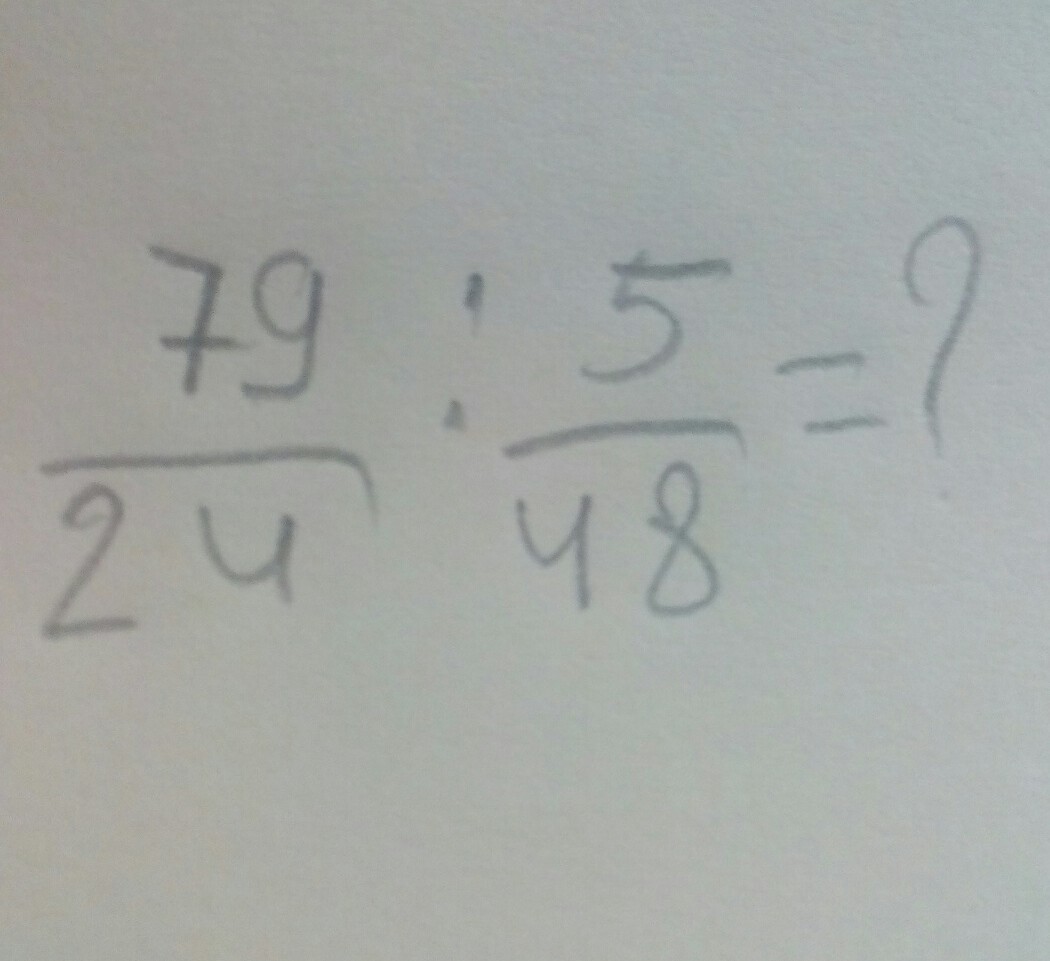 79/24 : 5/48 = ?